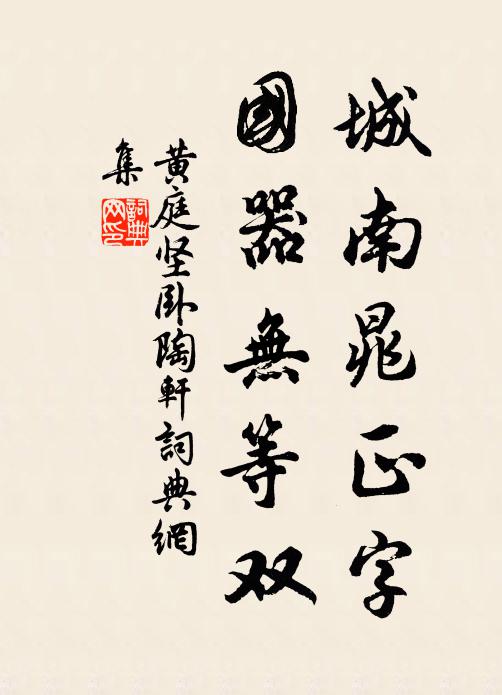 城南晁正字
國器無等双
黄庭坚卧陶軒詞典網
集
詞典網印